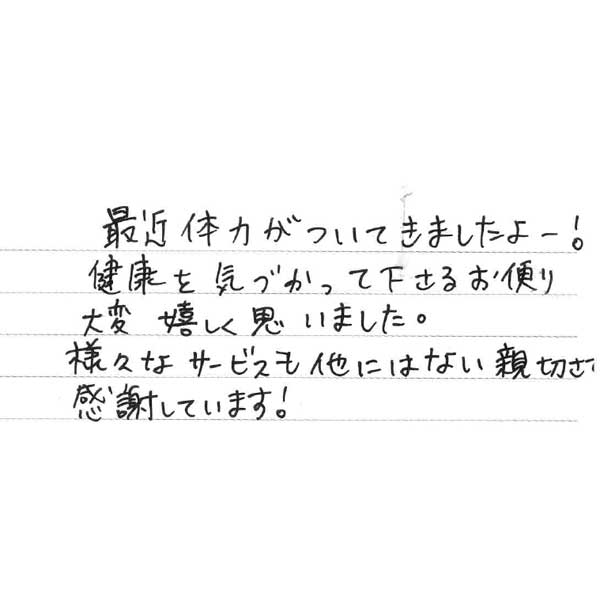 最近体力がついてきましたよー!
健康を気づかって下さるお便り
大変嬉しく思いました。
様々なサービスも他にはない親切さで
感謝しています!